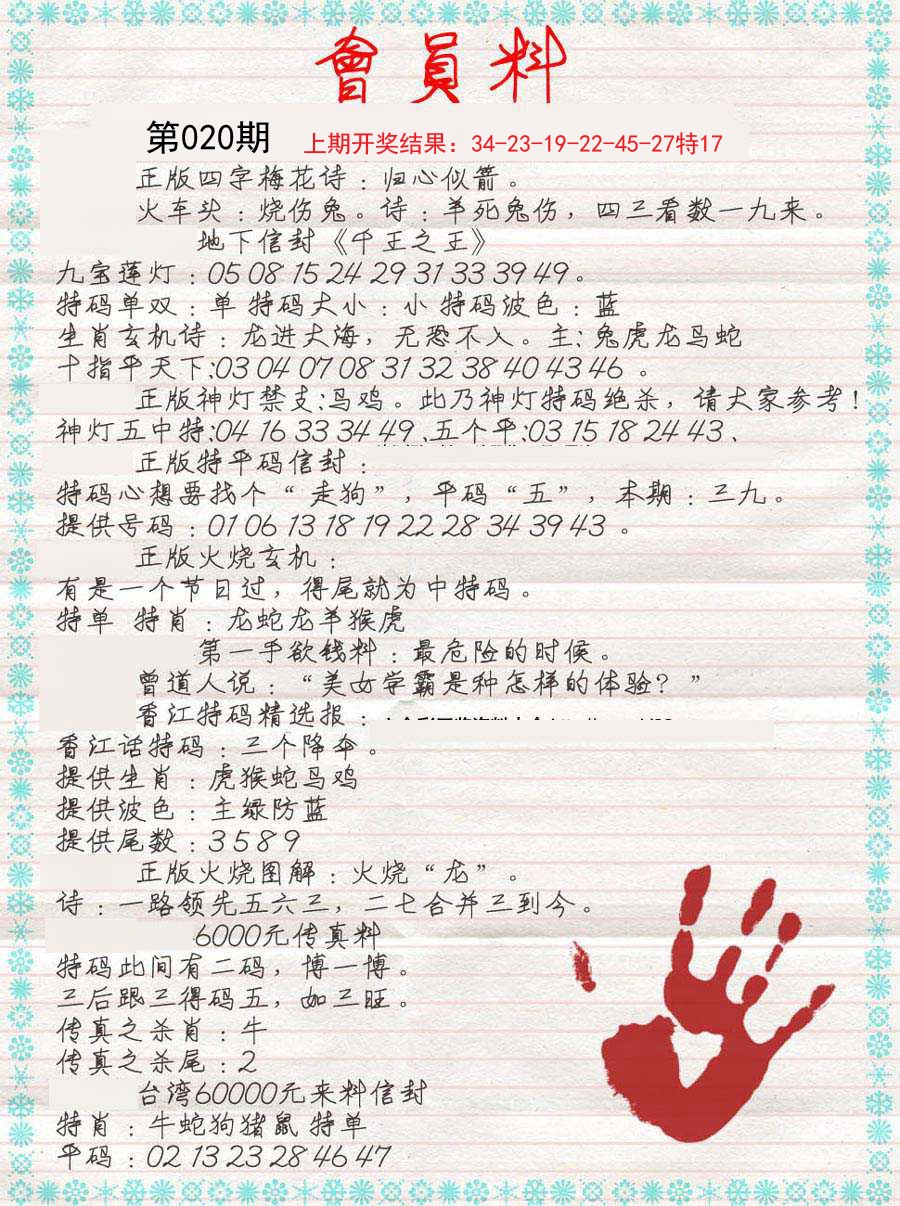 會員料
第020期 上期开奖结果：34-23-19-22-45-27特17
正版四字梅花诗：归心似箭。
火车头：烧伤兔。诗：羊死兔伤，四三看数一九来。
地下信封《千王之王》
九宝莲灯：05 08 15 24 29 31 33 39 49。
特码单双：单 特码大小：小 特码波色：蓝
生肖玄机诗：龙进大海，无恐不入。主：兔虎龙鸟蛇
十指平天下:03 04 07 08 31 32 38 40 43 46 。
正版神灯禁支:鸟鸡。此乃神灯特码绝杀，请大家参考！
神灯五中特:04 16 33 34 49、五个平:03 15 18 24 43、
正版特平码信封：
特码心想要找个“走狗”，平码“五”，本期：三九。
提供号码：01 06 13 18 19 22 28 34 39 43 。
正版火烧玄机：
有是一个节日过，得尾就为中特码。
特单 特肖：龙蛇龙羊猴虎
第一手欲钱料：最危险的时候。
曾道人说：“美女学霸是种怎样的体验？”
香江特码精选报：
香江话特码：三个降伞。
提供生肖：虎猴蛇鸟鸡
提供波色：主绿防蓝
提供尾数：3 5 8 9
正版火烧图解：火烧“龙”。
诗：一路领先五六三，二七合并三到今。
6000元传真料
特码此间有二码，博一博。
三后跟三得码五，如三旺。
传真之杀肖：牛
传真之杀尾：2
台湾60000元来料信封
特肖：牛蛇狗猪鼠 特单
平码：02 13 23 28 46 47